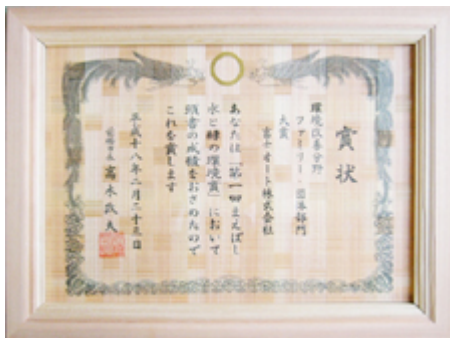 賞状
環境改善分野
ファミリー・団体部門
大賞
富士オート株式会社
あなたは「第一回まえばし
水と緑の環境賞」において
頭書の成績をおさめたので
これを賞します
平成十八年二月二十五日
前橋市長 高木政夫